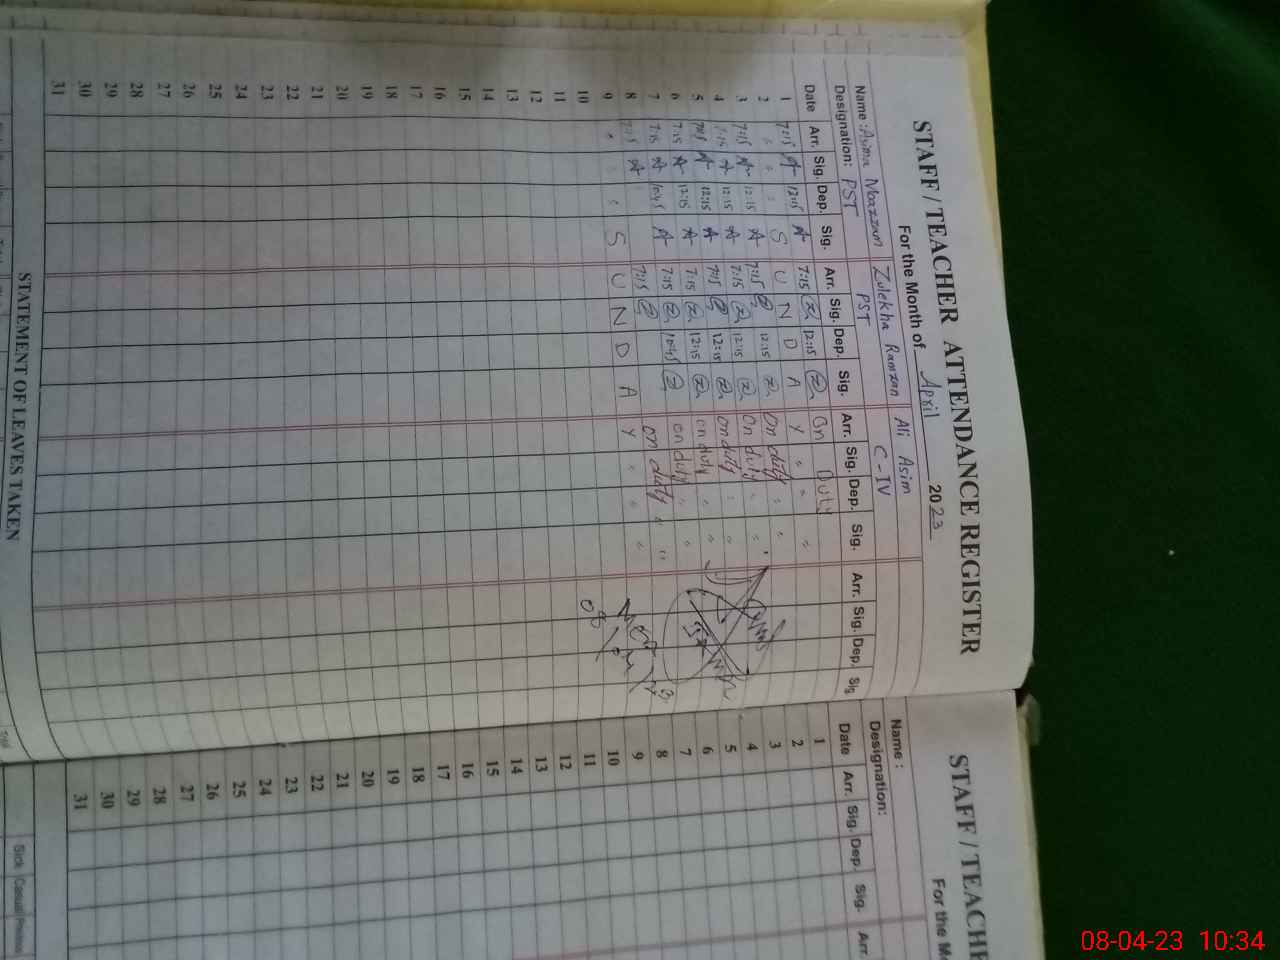 STAFF / TEACHER ATTENDANCE REGISTER
For the Month of April 2023
Name : Asima Moazzam Zulekha Ramzan Ali Asim
Designation: PST PST C-IV
Date Arr. Sig. Dep. Sig. Arr. Sig. Dep. Sig. Arr. Sig. Dep. Sig. Arr. Sig. Dep. Sig
1 7:15 A 12:15 A 7:15 Z 12:15 Z On Duty
2 " " S U N D A Y " " "
3 7:15 A 12:15 A 7:15 Z 12:15 Z On duty " "
4 7:15 A 12:15 A 7:15 Z 12:15 Z On duty " "
5 7:15 A 12:15 A 7:15 Z 12:15 Z On duty " "
6 7:15 A 12:15 A 7:15 Z 12:15 Z on duty " "
7 7:15 A 10:45 A 7:15 Z 10:45 Z on duty " "
8 7:15 A 7:15 Z on duty " "
9 " " S U N D A Y " " "
10
11
12
13
14
15
16
17
18
19
20
21
22
23
24
25
26
27
28
29
30
31
STATEMENT OF LEAVES TAKEN
STAFF / TEACHE
For the M
Name :
Designation:
Date Arr. Sig. Dep. Sig. Arr.
1
2
3
4
5
6
7
8
9
10
11
12
13
14
15
16
17
18
19
20
21
22
23
24
25
26
27
28
29
30
31
Sick Casual
08-04-23 10:34